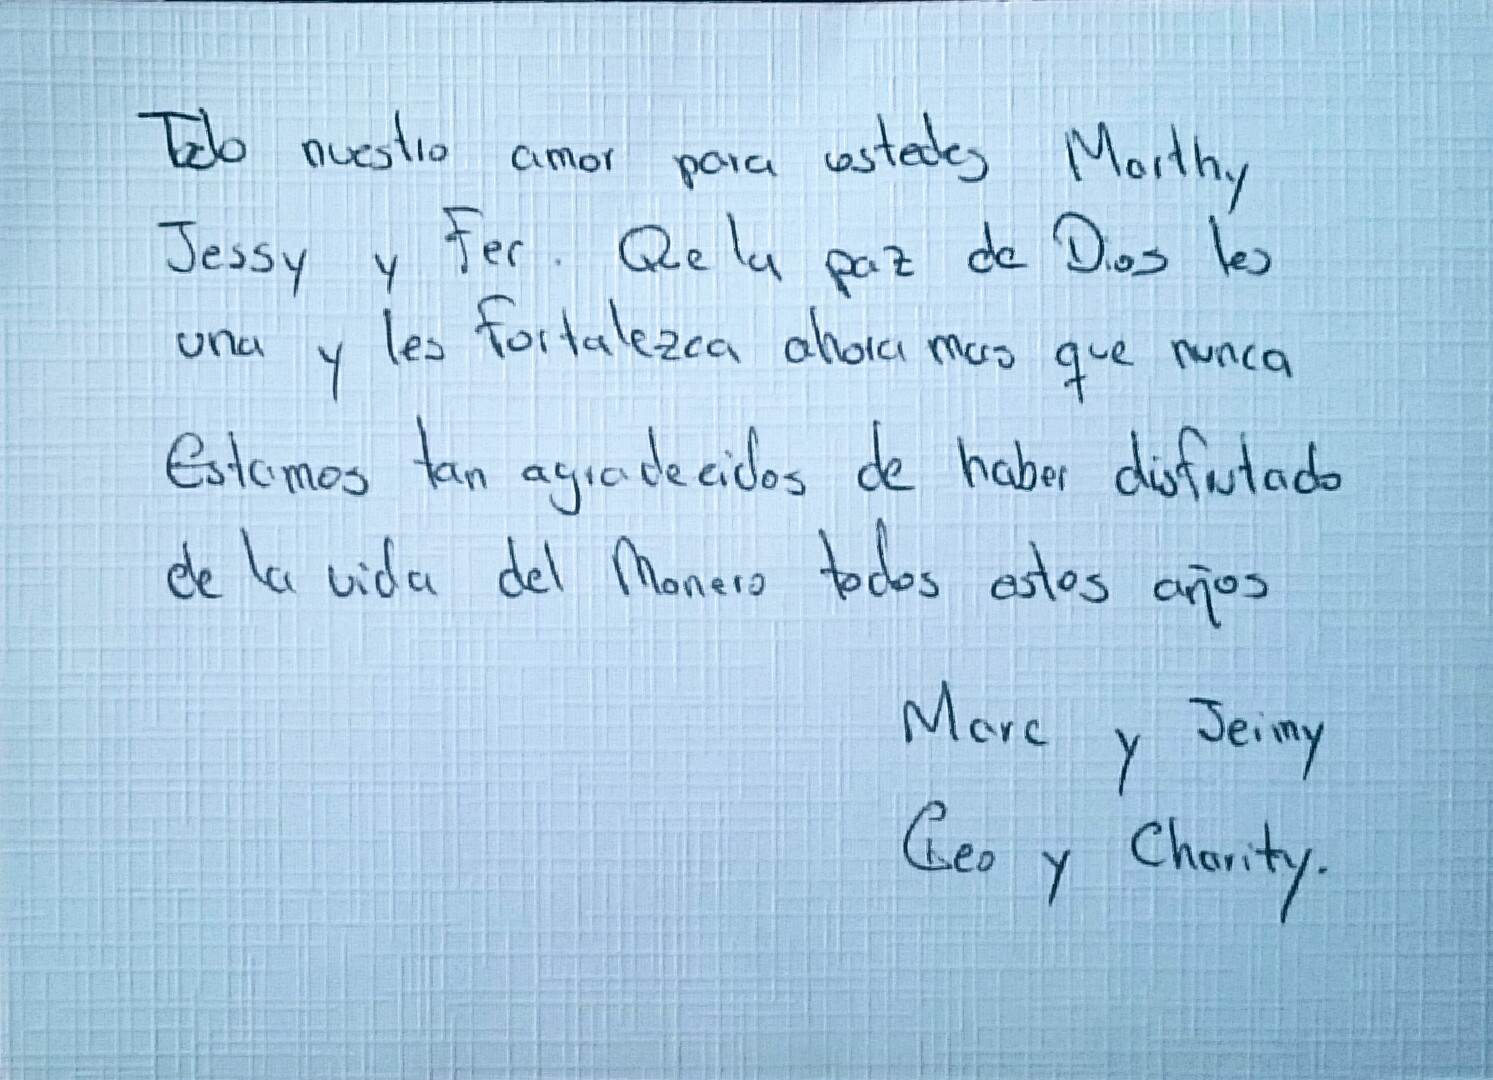 Todo nuestro amor para ustedes Marthy
Jessy y Fer. Que la paz de Dios les
una y les fortalezca ahora mas que nunca
Estamos tan agradecidos de haber disfrutado
de la vida del Monero todos estos años
Marc y Jeimy
Geo y Charity.